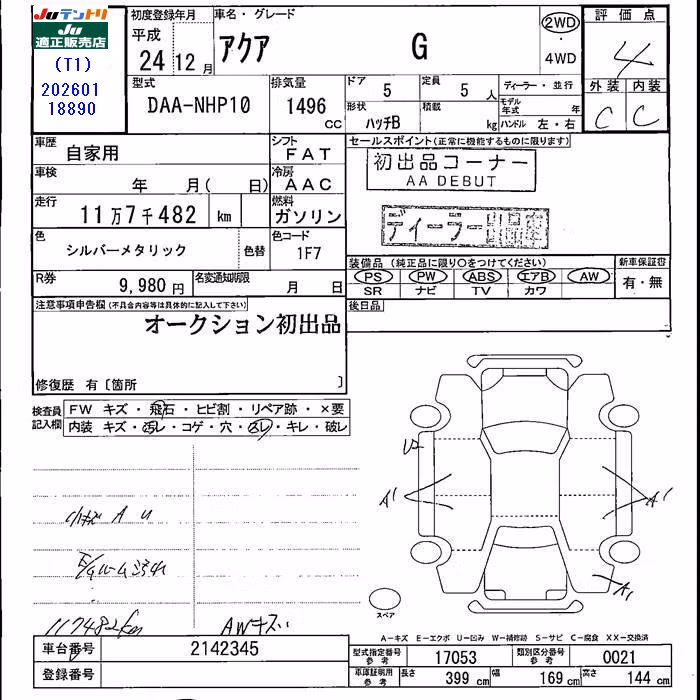 JUテントリ
JU
適正販売店
(T1)
202601
18890
初度登録年月
平成
24 12月
車名・グレード
アクア G
2WD
・
4WD
評価点
4
外装 内装
C C
型式
DAA-NHP10
排気量
1496
CC
ドア 5
定員 5人
形状
ハッチB
積載
kg
ディーラー・並行
モデル
年式 年
ハンドル 左・右
車歴
自家用
シフト
FAT
車検
年 月( 日)
冷房
AAC
走行
11万7千482 km
燃料
ガソリン
色
シルバーメタリック
色替
色コード
1F7
R券
9,980円
名変通知期限
月 日
セールスポイント(正常に機能するものに限ります)
初出品コーナー
AA DEBUT
ディーラー出品車
装備品(純正品に限り○をつけてください)
PS PW ABS エアB AW
SR ナビ TV カワ
新車保証書
有・無
後日品
注意事項申告欄(不具合内容等は具体的に記入して下さい)
オークション初出品
修復歴 有〔箇所 〕
検査員
記入欄
FW キズ・飛石・ヒビ割・リペア跡・×要
内装 キズ・汚レ・コゲ・穴・スレ・キレ・破レ
U2
A1
A1
A1
小キズ A U
E/Gルーム汚れ
117482km
AWキズ
スペア
A−キズ E−エクボ U−凹み W−補修跡 S−サビ C−腐食 XX−交換済
車台番号
2142345
登録番号
型式指定番号
参考
17053
類別区分番号
参考
0021
車庫証明用
参考
長さ 399 cm
幅 169 cm
高さ 144 cm